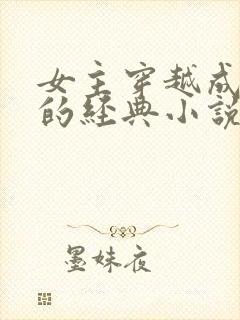 女主穿越成
的经典小说
墨妹夜